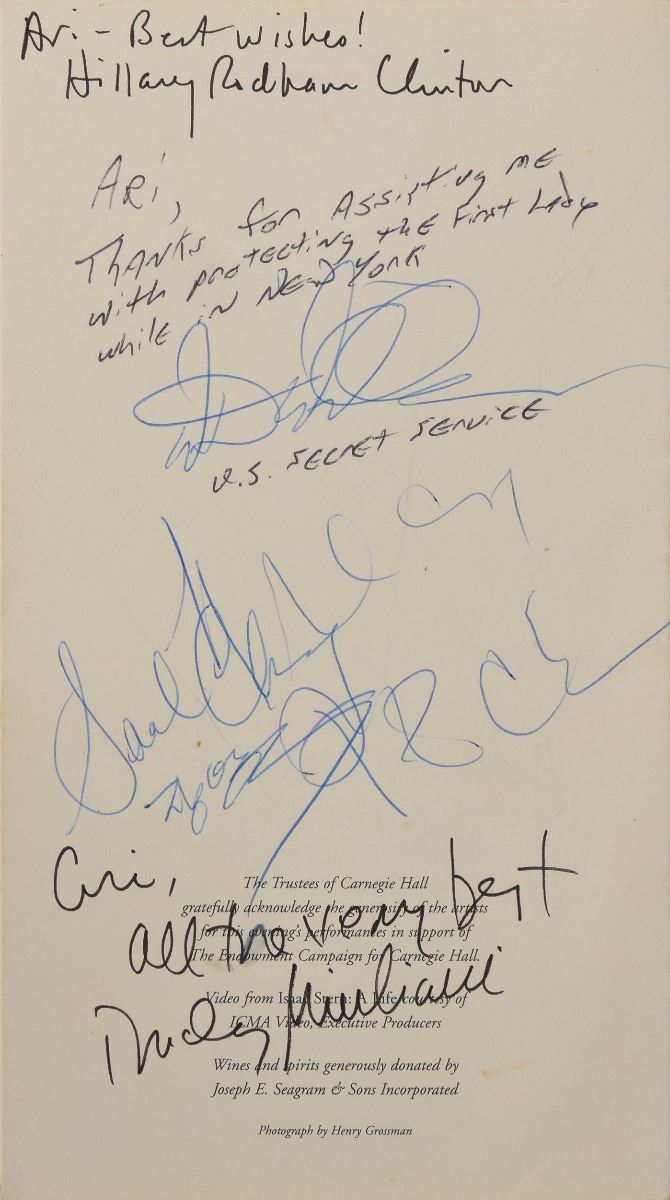 Ari - Best wishes!
Hillary Rodham Clinton
ARi,
THANKS for Assisting ME
with protecting the First Lady
while in NEW YORK
U.S. SECRET SERVICE
Ari,
The Trustees of Carnegie Hall
gratefully acknowledge the generosity of the artists
for this evening's performances in support of
The Endowment Campaign for Carnegie Hall.
all the very best
Rudy Giuliani
Video from Isaac Stern: A Life courtesy of
ICMA Video, Executive Producers
Wines and spirits generously donated by
Joseph E. Seagram & Sons Incorporated
Photograph by Henry Grossman